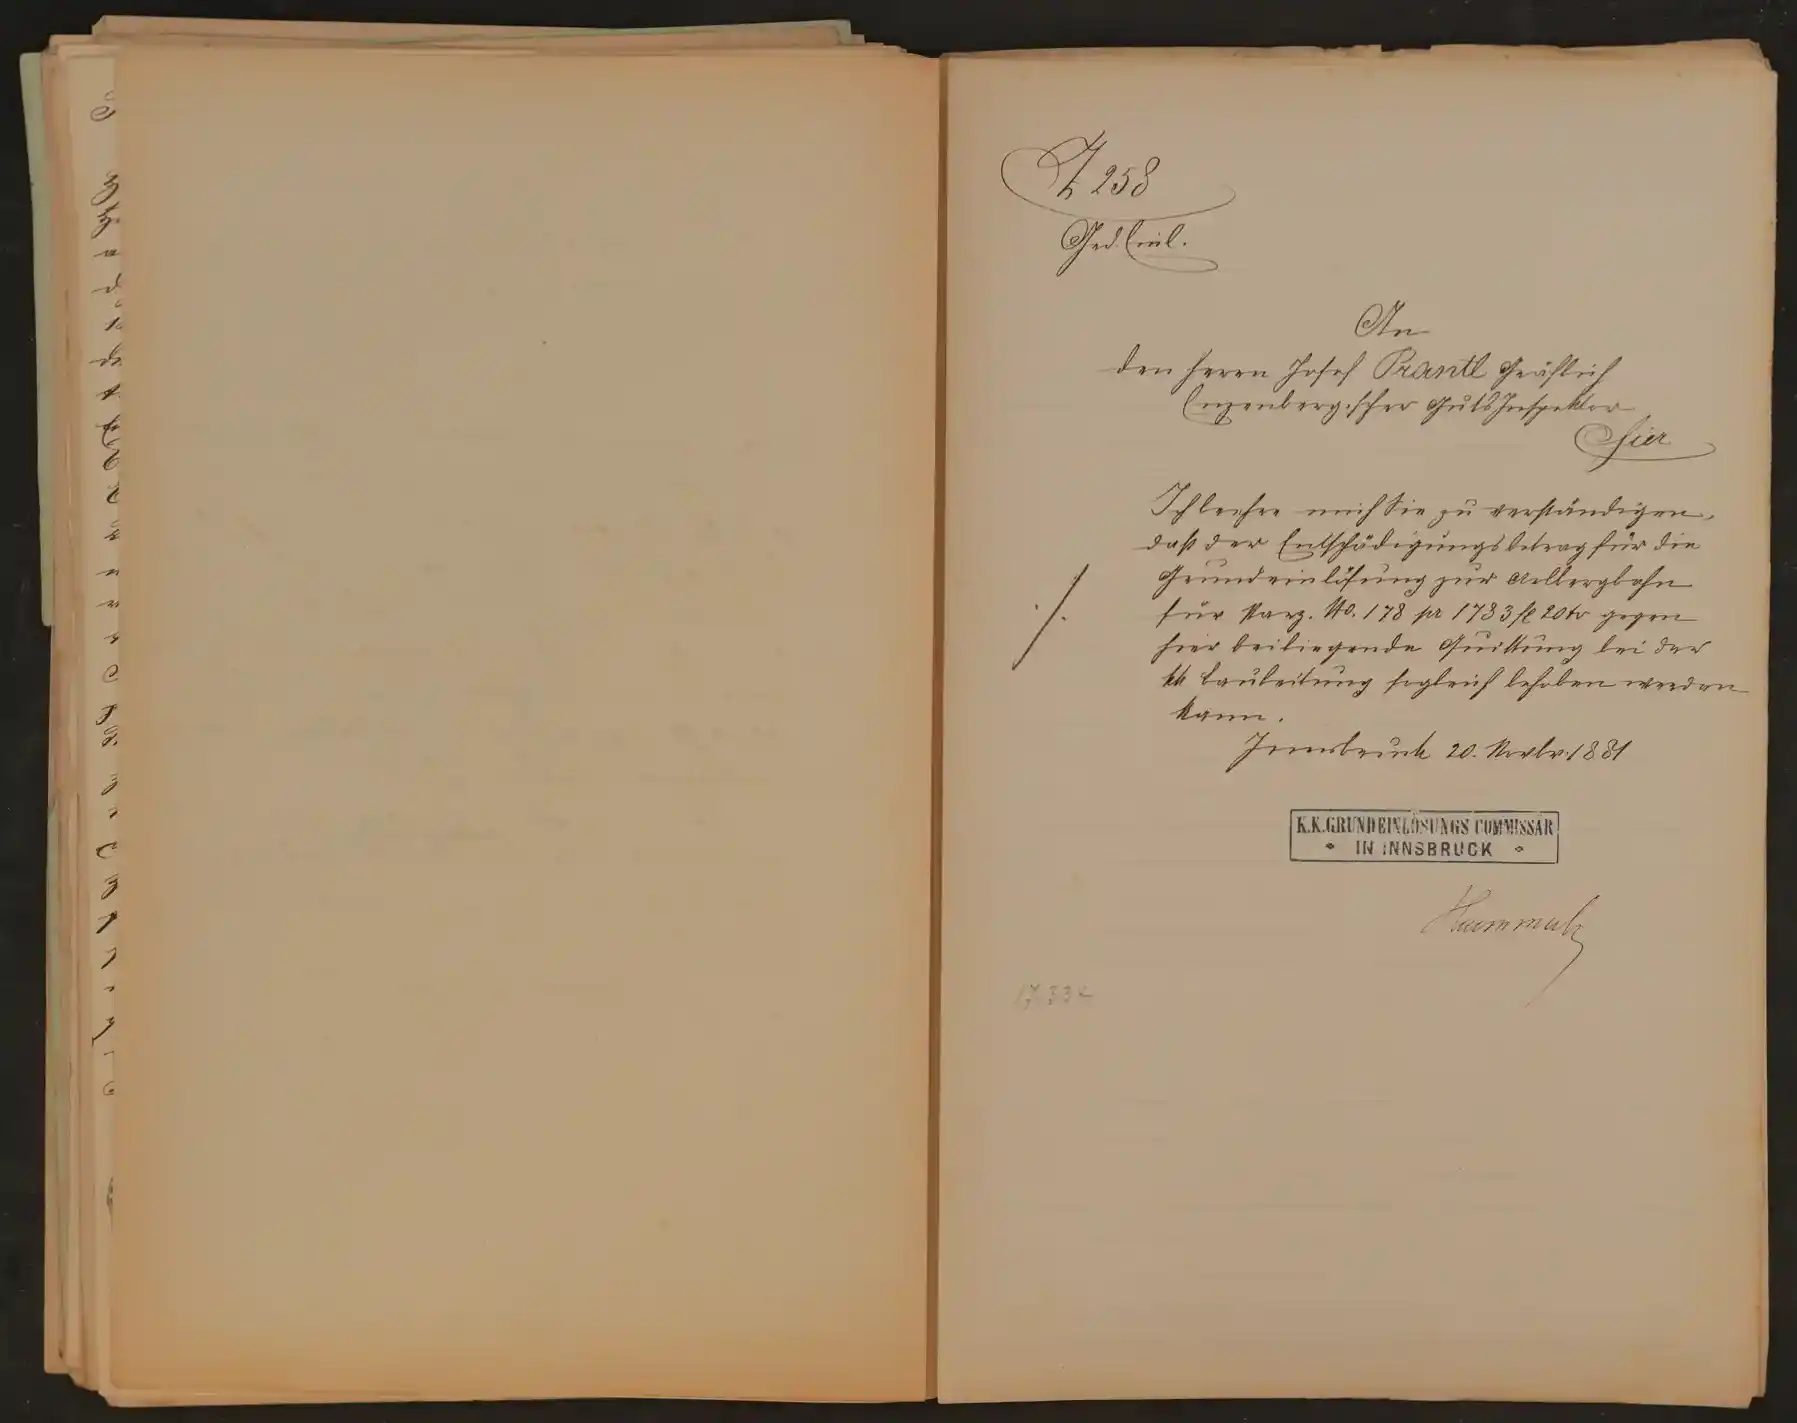 Z 258
Grd. Einl.
An
den Herrn Josef Prantl Gräflich
Enzenberg'scher Guts Inspektor
Hier
Ich beehre mich Sie zu verständigen,
daß der Entschädigungsbetrag für die
Grundeinlösung zur Arlbergbahn
für Parz. No. 178 pr 1733 fl 20 kr gegen
hier beiliegende Quittung bei der
kk Bauleitung sogleich behoben werden
kann.
Innsbruck 20. Novbr. 1881
K.K. GRUNDEINLÖSUNGS COMMISSÄR
IN INNSBRUCK